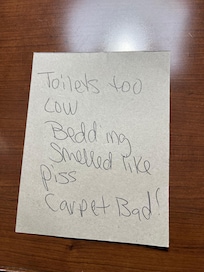 Toilets too
Low
Bedding
Smelled like
piss
Carpet Bad!